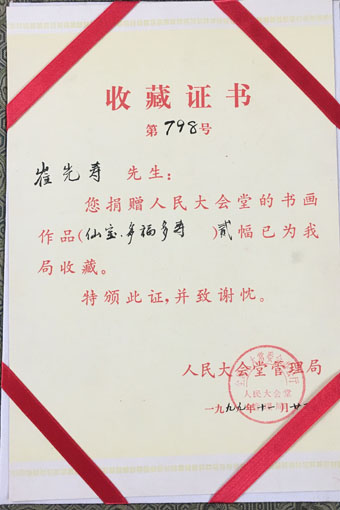 收藏证书
第798号
崔先寿 先生：
您捐赠人民大会堂的书画
作品(仙寔.多福多寿 )贰幅已为我
局收藏。
特颁此证,并致谢忱。
人民大会堂管理局
人民大会堂
一九九九年十一月廿